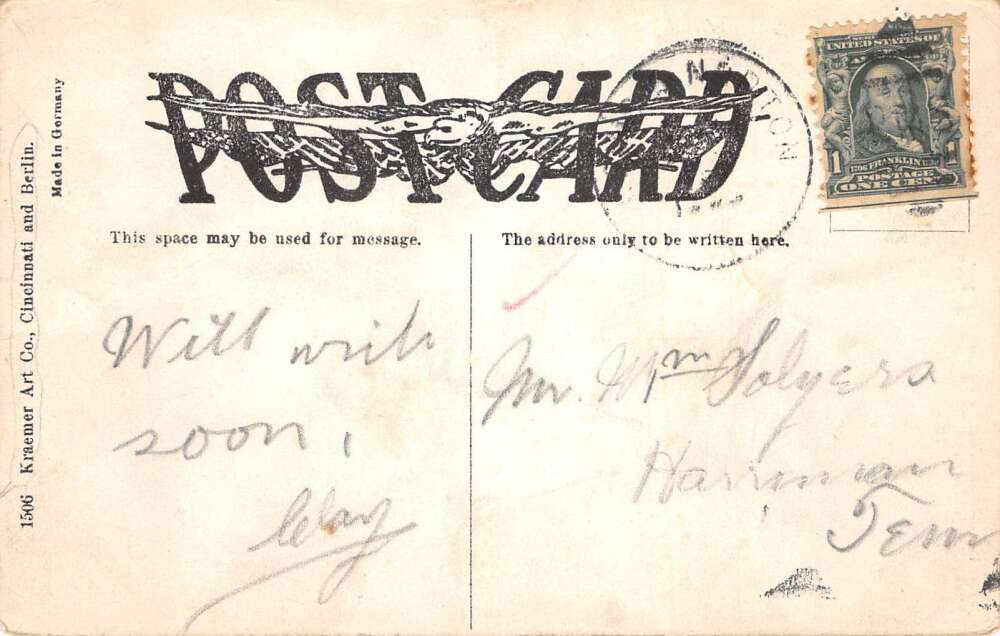 POST CARD
This space may be used for message.
The address only to be written here.
UNITED STATES OF
1 FRANKLIN 1
POSTAGE
ONE CENT
Will write
soon.
Clay
Mr. Wm Solyers
Harriman
Tenn
1506 Kraemer Art Co., Cincinnati and Berlin.
Made in Germany